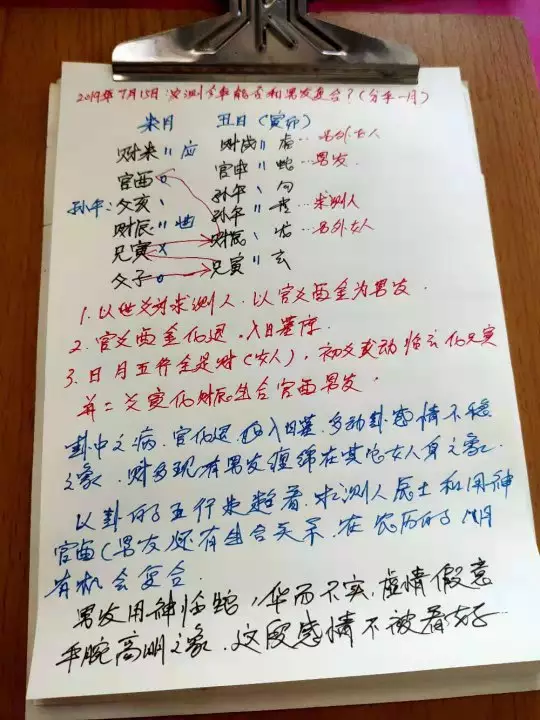 2019年7月15日:女测今年能否和男友复合?(分手一月)
未月 丑日(寅卯)
财未〃应 财戌〃虎…另外女人
官酉o 官申〃蛇…男友
孙午:父亥、 孙午、勾
财辰〃世 孙午〃 …求测人
兄寅x 财辰、 …另外女人
父子o 兄寅〃玄
1.以世爻为求测人.以官爻酉金为男友.
2.官爻酉金化退.入日墓库.
3.日月五行全是财(女人),初爻发动临玄化兄寅
并二爻寅化财辰生合官酉男友.
卦中之病.官化退 入日墓.多动卦感情不稳
之象.财多现有男友缠绵在其它女人身之象.
以卦的五行来趋看.求测人辰土和用神
官酉(男友)还有生合关系.在农历的 月
有机会复合.
男友用神临蛇,华而不实.虚情假意
手腕高明之象.这段感情不被看好